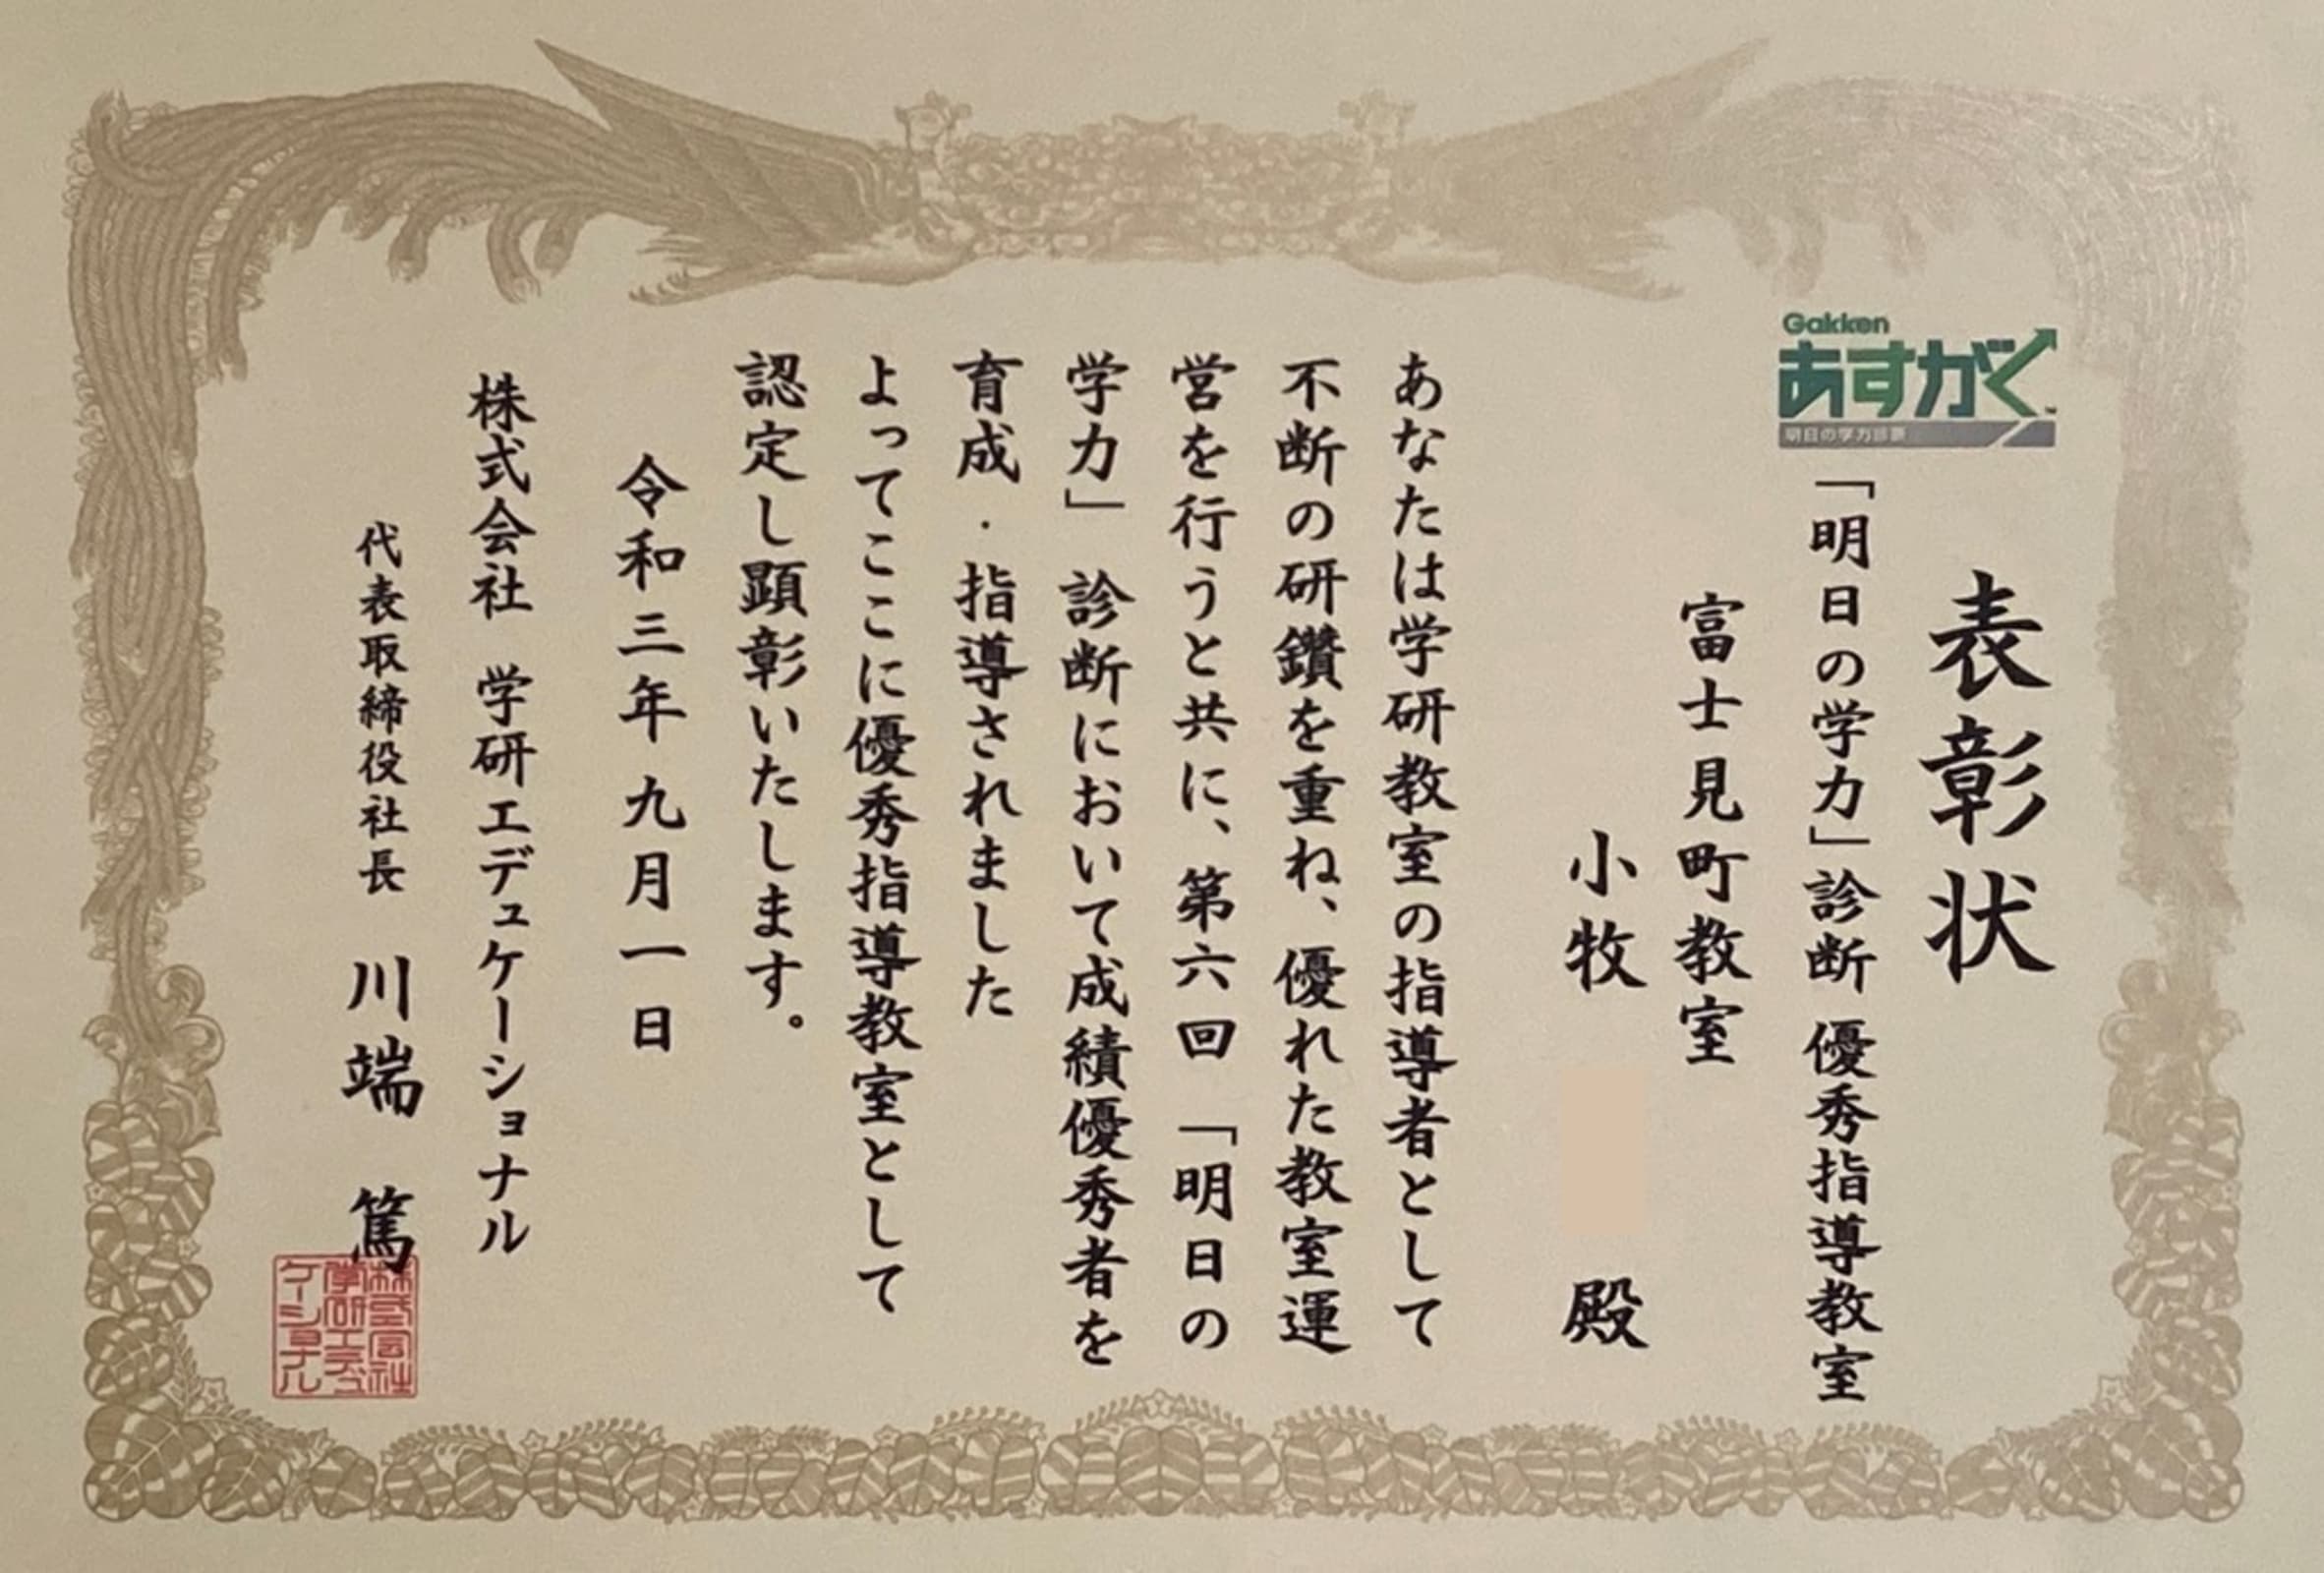 表彰状
Gakken
あすがく
明日の学力診断
「明日の学力」診断 優秀指導教室
富士見町教室
小牧 殿
あなたは学研教室の指導者として
不断の研鑽を重ね、優れた教室運
営を行うと共に、第六回「明日の
学力」診断において成績優秀者を
育成・指導されました
よってここに優秀指導教室として
認定し顕彰いたします。
令和三年九月一日
株式会社 学研エデュケーショナル
代表取締役社長 川端 篤
株式会社
学研エデュ
ケーショナル